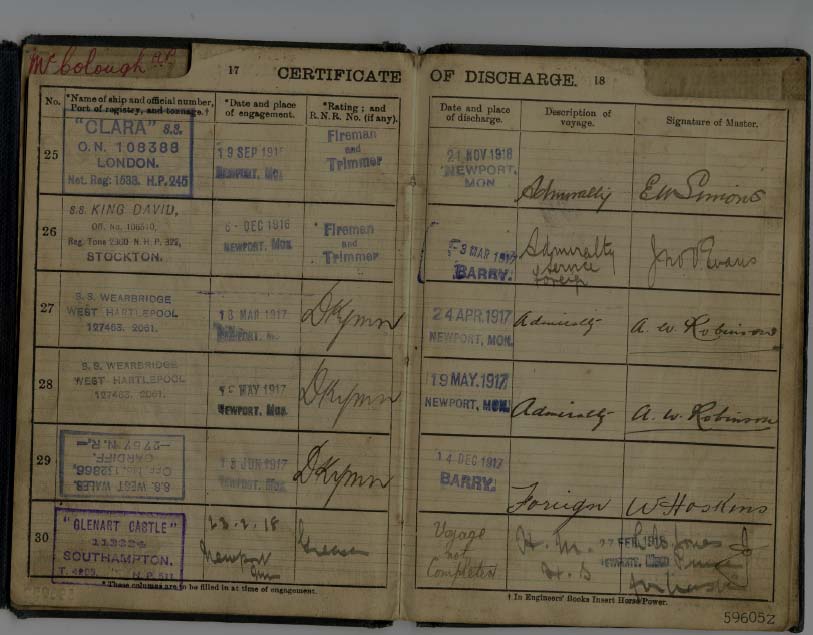 McColough
17 CERTIFICATE OF DISCHARGE. 18
No.
*Name of ship and official number,
Port of registry, and tonnage.†
*Date and place
of engagement.
*Rating; and
R.N.R. No. (if any).
Date and place
of discharge.
Description of
voyage.
Signature of Master.
25
"CLARA" S.S.
O.N. 108388
LONDON.
Net. Reg: 1533. H.P. 245
19 SEP 191
NEWPORT, MON
Fireman
and
Trimmer
21 NOV 1916
NEWPORT,
MON
Admiralty
E W Simons
26
S.S. KING DAVID,
Off. No. 106510,
Reg. Tons 2300 N.H.P. 322,
STOCKTON.
6 - DEC 1916
NEWPORT, MON.
Fireman
and
Trimmer
3 MAR 1917
BARRY.
Admiralty
& service
foreign
Jno Evans
27
S.S. WEARBRIDGE
WEST HARTLEPOOL
127463. 2061.
13 MAR 1917
NEWPORT, M
DKymn
24 APR. 1917
NEWPORT, MON.
Admiralty
A. W. Robinson
28
S.S. WEARBRIDGE
WEST HARTLEPOOL
127463. 2061.
MAY 1917
NEWPORT, MON.
DKymn
19 MAY. 1917
NEWPORT, MON.
Admiralty
A. W. Robinson
29
S.S. WEST WALES.
OFF. NO. 132866.
CARDIFF.
—2757 N.R.—
13 JUN 1917
NEWPORT, MON.
DKymn
14 DEC 1917
BARRY.
Foreign
W Hoskins
30
"GLENART CASTLE"
SOUTHAMPTON.
H.P. 511
23.2.18
Newport
Mon
Greaser
Voyage
not
Completed
H. M.
H. S
FEB 1918
Jones
*These columns are to be filled in at time of engagement.
† In Engineers' Books Insert Horse Power.
596052